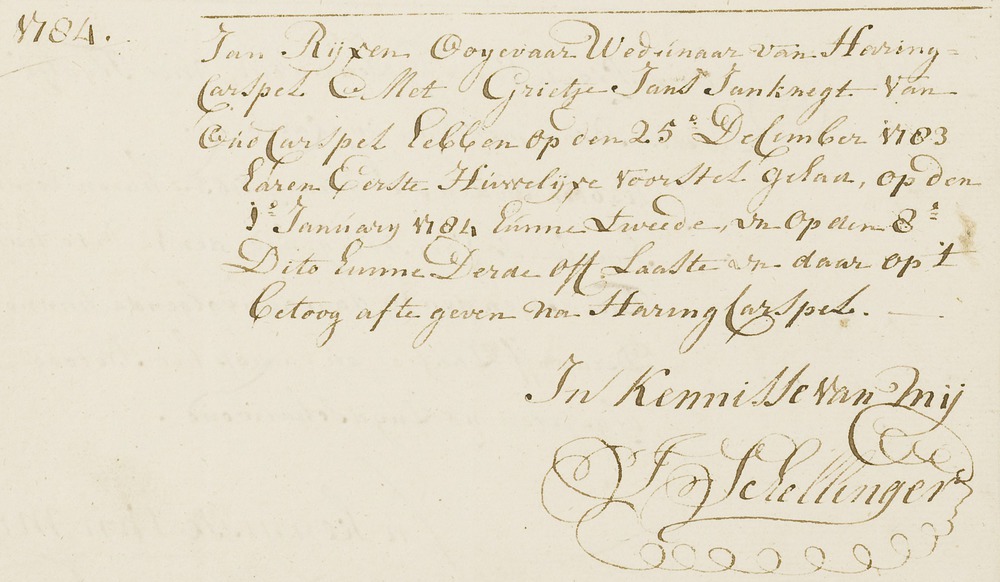 1784.
Jan Rijxen Ooyevaar Wedúnaar van Haring=
Carspel Met Grietje Jans Janknegt van
Oúd Carspel hebben op den 25e December 1783
haren Eerste Húwelijxe voorstel gehad, op den
1e Janúary 1784 húnne tweede, en op den 8e
Dito húnne Derde off Laaste en daar op t
betoog afte geven na HaringCarspel.
In Kennisse van mij
J Schellinger